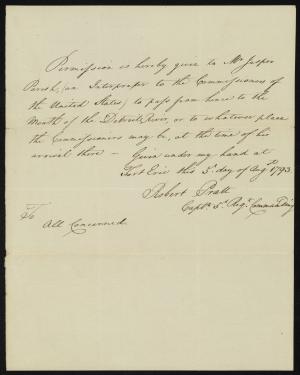 Permission is hereby given to Mr Jasper
Parish, (an Interpreter to the Commissioners of
the United States) to pass from hence to the
Mouth of the Detroit River, or to whatever place
the Commissioners may be, at the time of his
arrival there — Given under my hand at
Fort Erie this 5th day of Augt 1793
Robert Pratt
Captn 5th Regt Commanding
To
All Concerned